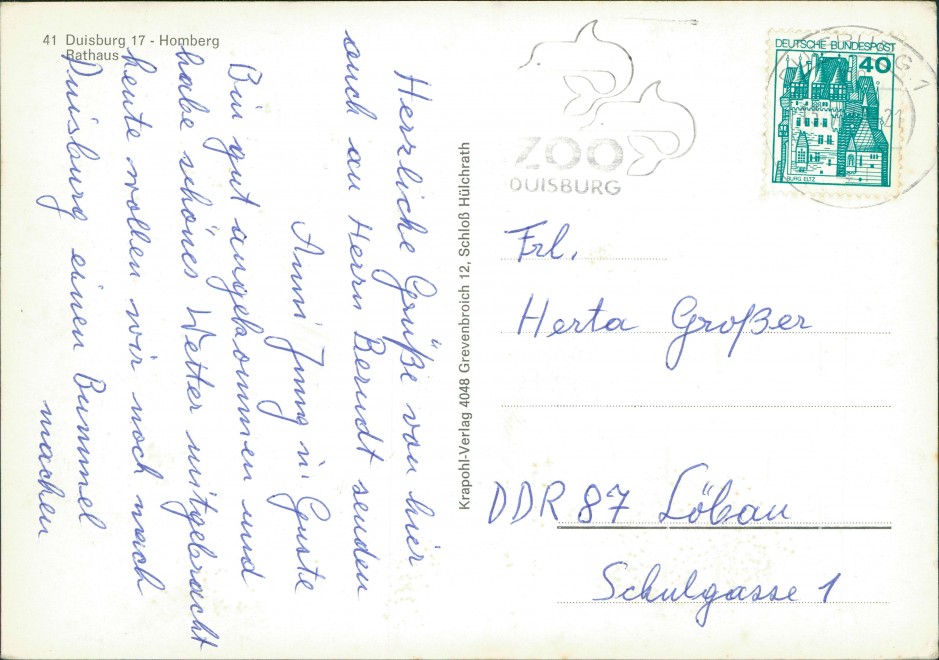 41 Duisburg 17 - Homberg
Rathaus
Herzliche Grüße von hier
auch an Herrn Berndt senden
Anni Jung u. Guste
Bin gut angekommen und
habe schönes Wetter mitgebracht
heute wollen wir noch nach
Duisburg einen Bummel
machen
Krapohl-Verlag 4048 Grevenbroich 12, Schloß Hülchrath
ZOO
DUISBURG
DEUTSCHE BUNDESPOST
40
BURG ELTZ
Frl.
Herta Großer
DDR 87 Löbau
Schulgasse 1